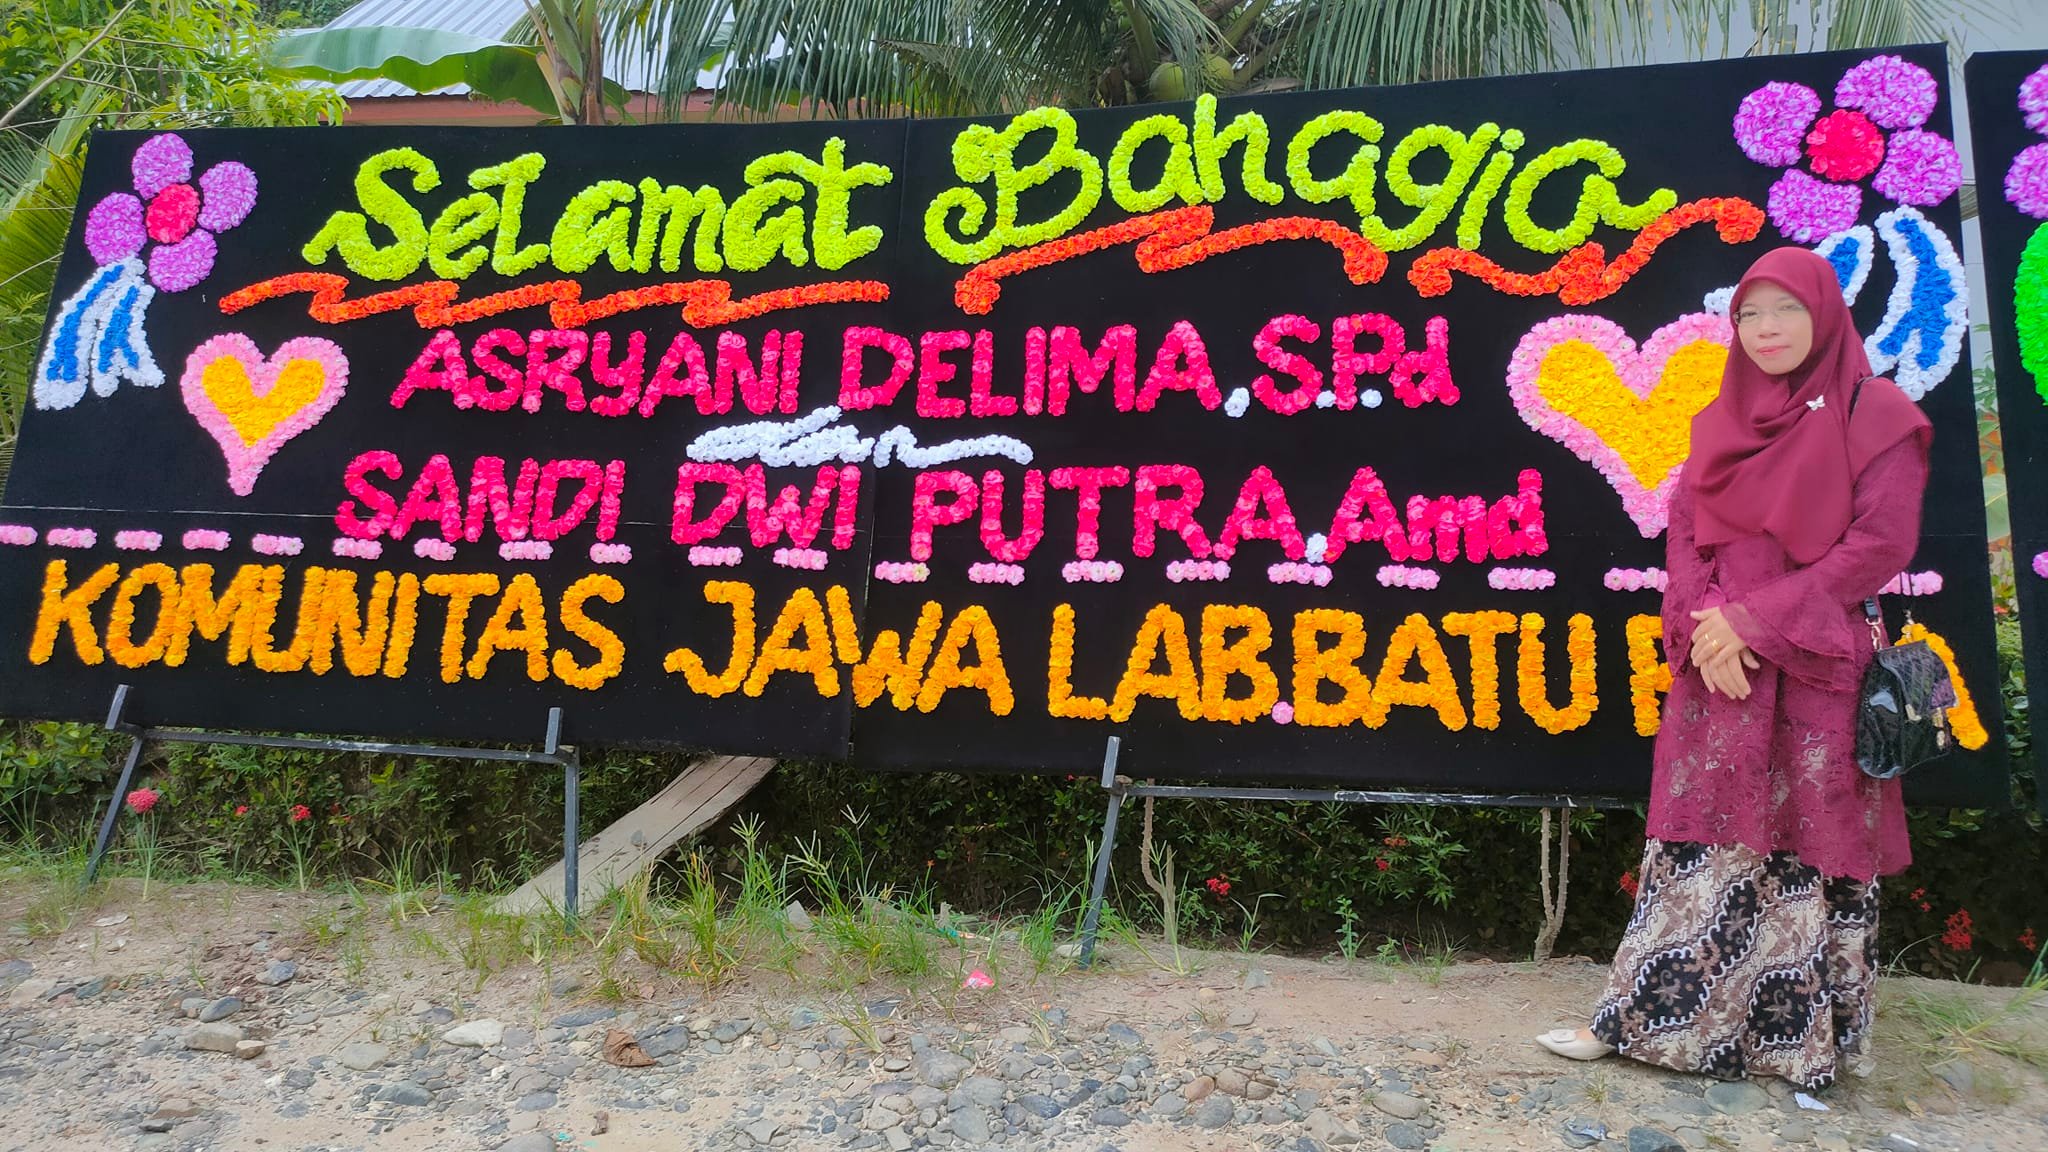 Selamat Bahagia
ASRYANI DELIMA.S.P.d
dan
SANDI DWI PUTRA.Amd
KOMUNITAS JAWA LABBATU